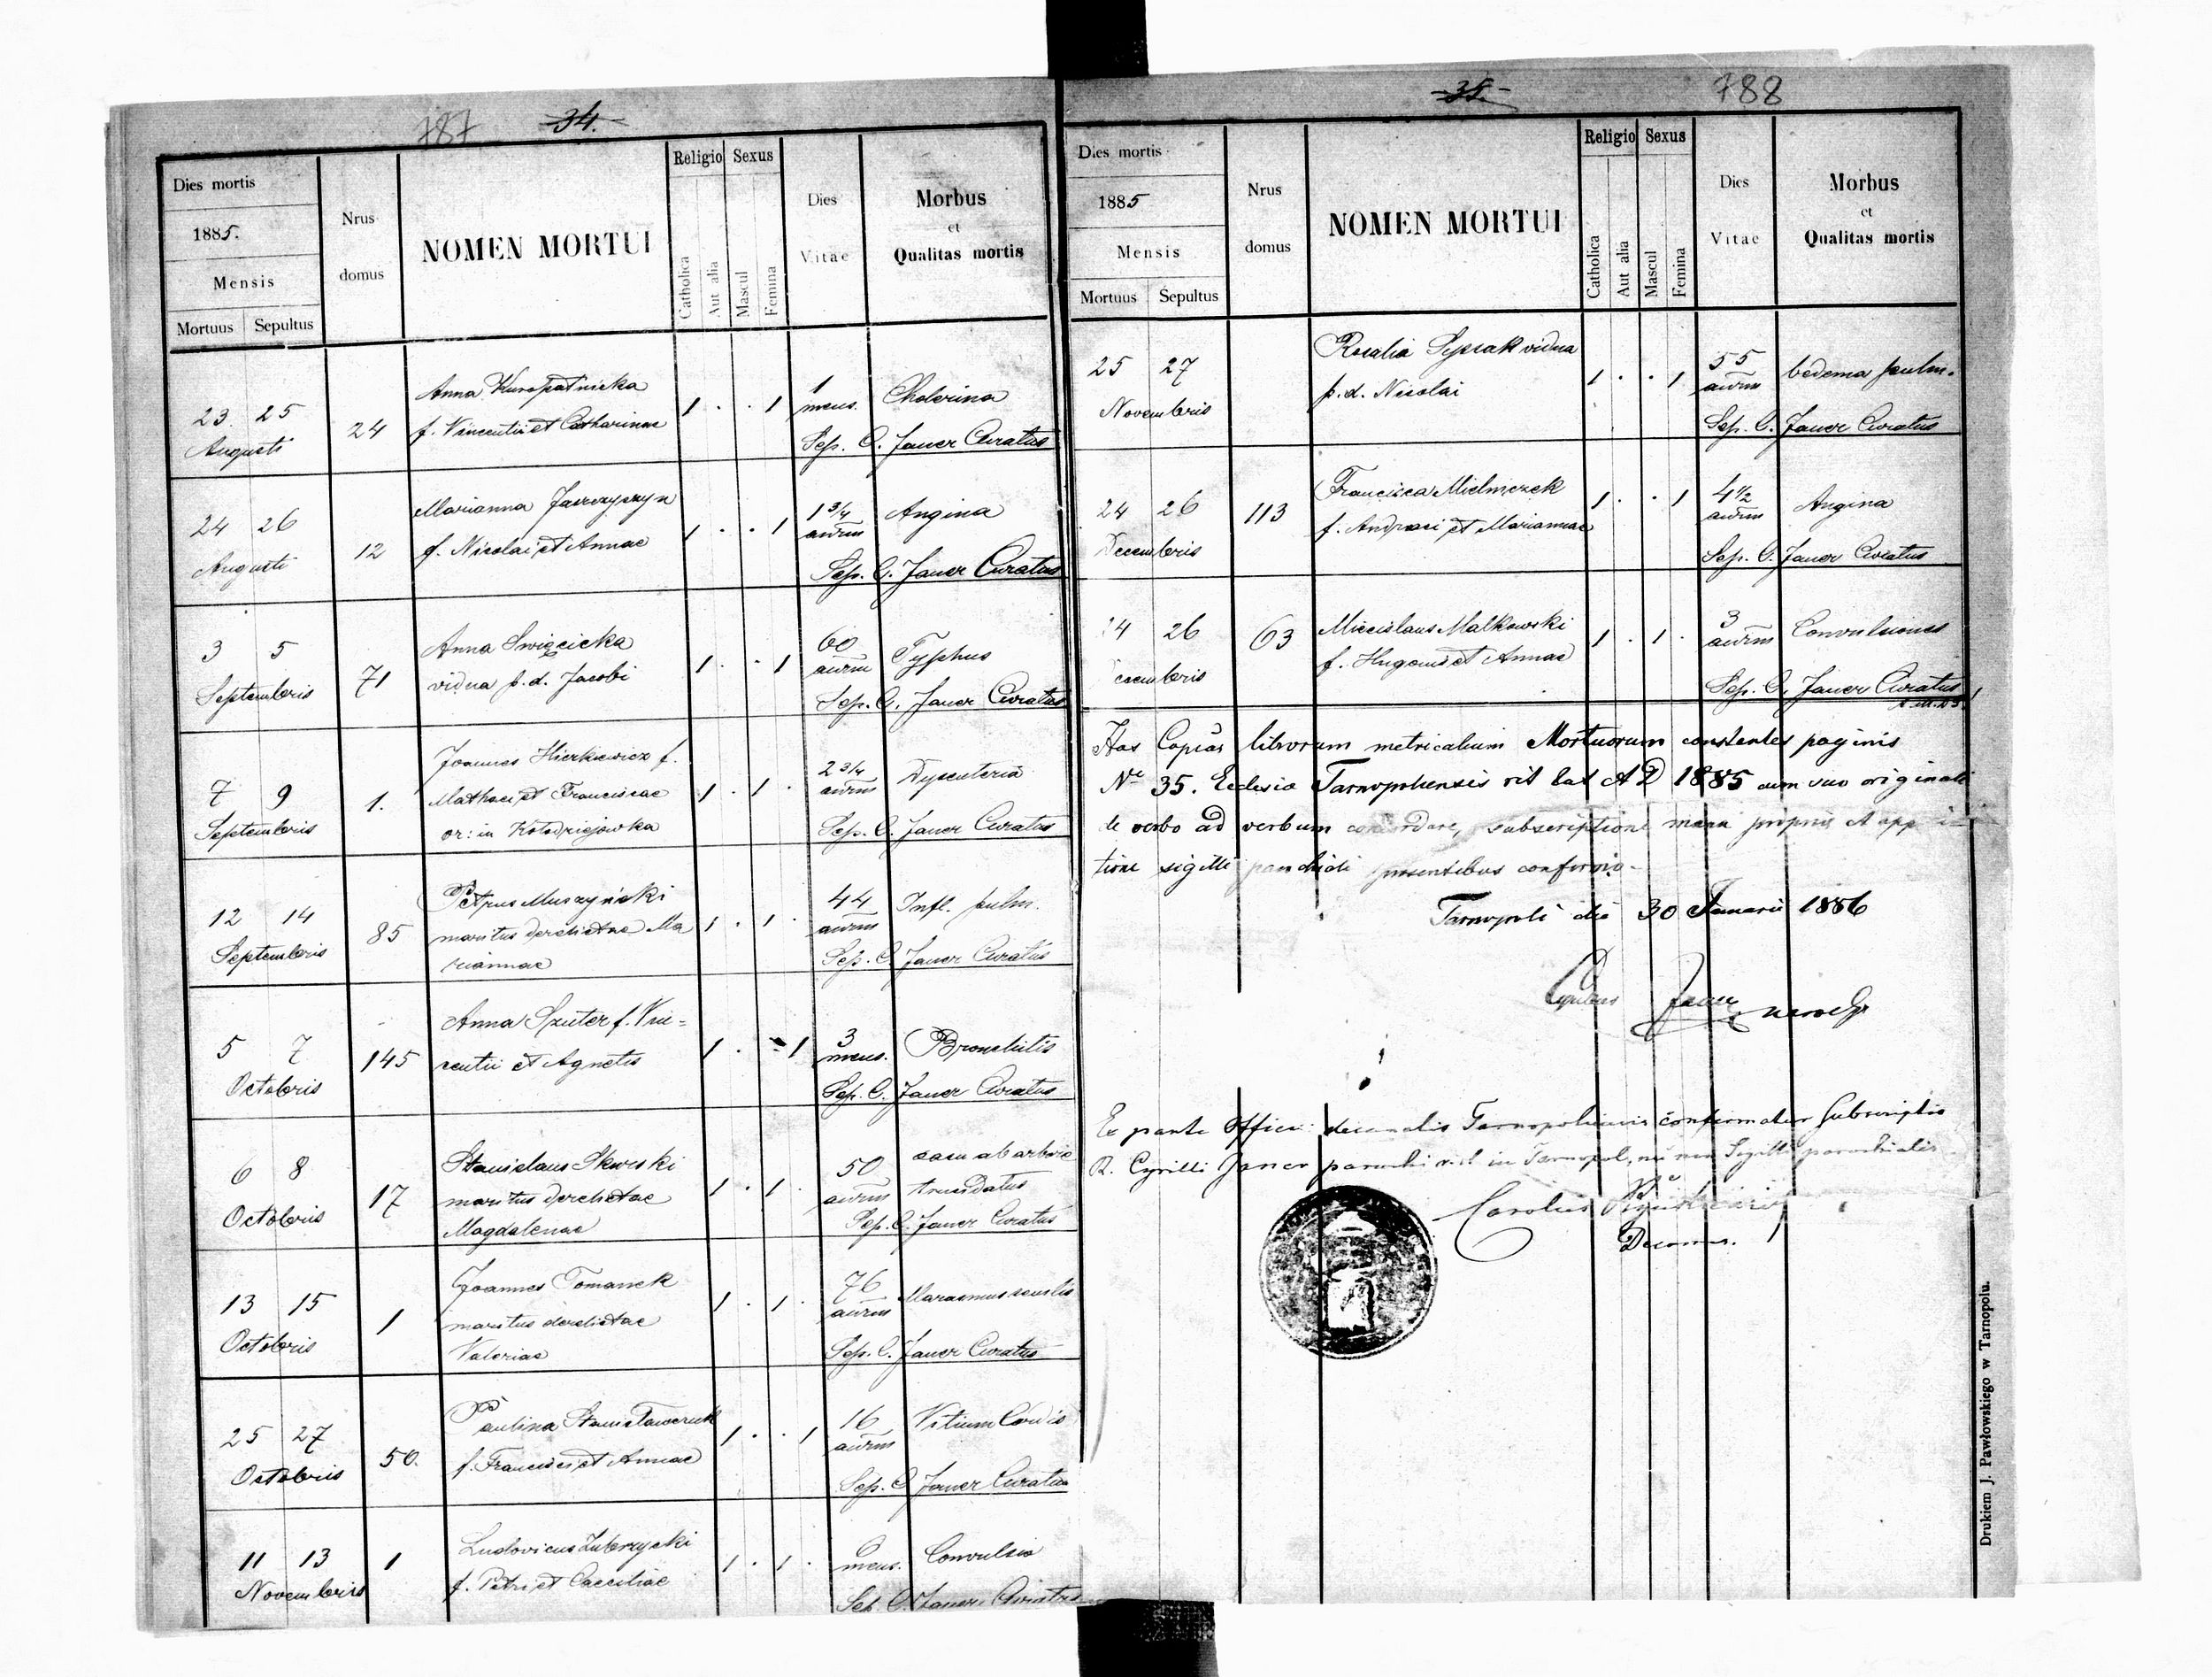 787 34.
Dies mortis
1885.
Mensis
Mortuus Sepultus
Nrus
domus
NOMEN MORTUI
Religio Sexus
Catholica
Aut alia
Mascul
Femina
Dies
Vitae
Morbus
et
Qualitas mortis
23 25
Augusti
24
Anna Kuropatnicka
f. Vincentii et Catharinae
1 . . 1
1
mens.
Cholerina
Sep. C. Janer Curatus
24 26
Augusti
12
Marianna
f. Nicolai et Annae
1 . . 1
1 3/4
anrum
Angina
Sep. C. Janer Curatus
3 5
Septembris
71
Anna Swięcicka
vidua p. d. Jacobi
1 . . 1
60
anrum
Typhus
Sep. C. Janer Curatus
7 9
Septembris
1.
Joannes Hierkiewicz f.
Mathaei et Franciscae
or: in Kołodziejowka
1 . 1 .
2 3/4
anrum
Dysenteria
Sep. C. Janer Curatus
12 14
Septembris
85
Petrus Muszyński
maritus derelictae Ma
riannae
1 . 1 .
44
anrum
Infl. pulm.
Sep. C. Janer Curatus
5 7
Octobris
145
Anna Szuter f. Vin=
centii et Agnetis
1 . . 1
3
mens.
Bronchitis
Sep. C. Janer Curatus
6 8
Octobris
17
Stanislaus Skurski
maritus derelictae
Magdalenae
1 . 1 .
50
anrum
casu ab arbore
trucidatus
Sep. C. Janer Curatus
13 15
Octobris
1
Joannes Tomanek
maritus derelictae
Valeriae
1 . 1 .
76
anrum
Marasmus senilis
Sep. C. Janer Curatus
25 27
Octobris
50.
Paulina
f. Francisci et Annae
1 . . 1
16
anrum
Vitium Cordis
Sep. C. Janer Curatus
11 13
Novembris
1
Ludovicus Zubrzycki
f. Petri et Caeciliae
1 . 1 .
mens.
Convulsio
Sep. C. Janer Curatus
35. 788
Dies mortis
1885
Mensis
Mortuus Sepultus
Nrus
domus
NOMEN MORTUI
Religio Sexus
Catholica
Aut alia
Mascul
Femina
Dies
Vitae
Morbus
et
Qualitas mortis
25 27
Novembris
Rosalia vidua
p. d. Nicolai
1 . . 1
55
anrum
oedema pulm.
Sep. C. Janer Curatus
24 26
Decembris
113
Francisca Mielniczek
f. Andreae et Mariannae
1 . . 1
4 1/2
anrum
Angina
Sep. C. Janer Curatus
24 26
cembris
63
Miecislaus Malkowski
f. Hugonis et Annae
1 . 1 .
3
anrum
Convulsiones
Sep. C. Janer Curatus
Has Copias librorum metricalium Mortuorum constentes paginis
No 35. Ecclesia Tarnopolensis rit lat AD 1885 cum suo originali
de verbo ad verbum concordare, subscriptione manu propria et
tione sigilli parochialis presentibus confirmo
Tarnopoli die 30 Januarii 1886
Cyrillus Janer
Ex parte Officii decanalis Tarnopoliensis confirmatur Subscriptio
R. Cyrilli Janer parochi r. l. in Tarnopol, nec non Sigilli parochialis
Carolus
Decanus.
Drukiem J. Pawłowskiego w Tarnopolu.